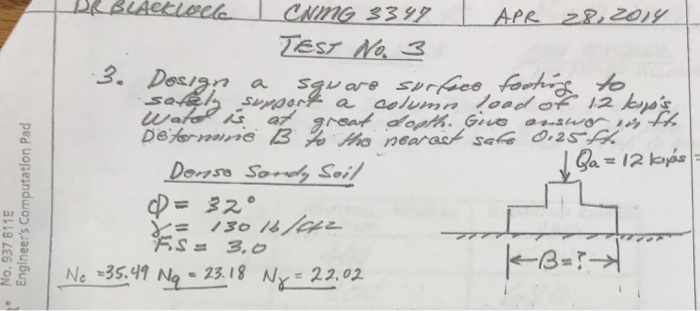 DR BLACKLOCK CNMG 3347 APR 28, 2014
TEST No. 3
3. Design a square surface footing to
safely support a column load of 12 kips
Water is at great depth. Give answer in ft.
Determine B to the nearest safe 0.25 ft.
Dense Sandy Soil
Qa = 12 kips
Φ = 32°
γ = 130 lb/ft2
F.S = 3.0
B = ?
Nc = 35.49 Nq = 23.18 Nγ = 22.02
No. 937 811E
Engineer's Computation Pad